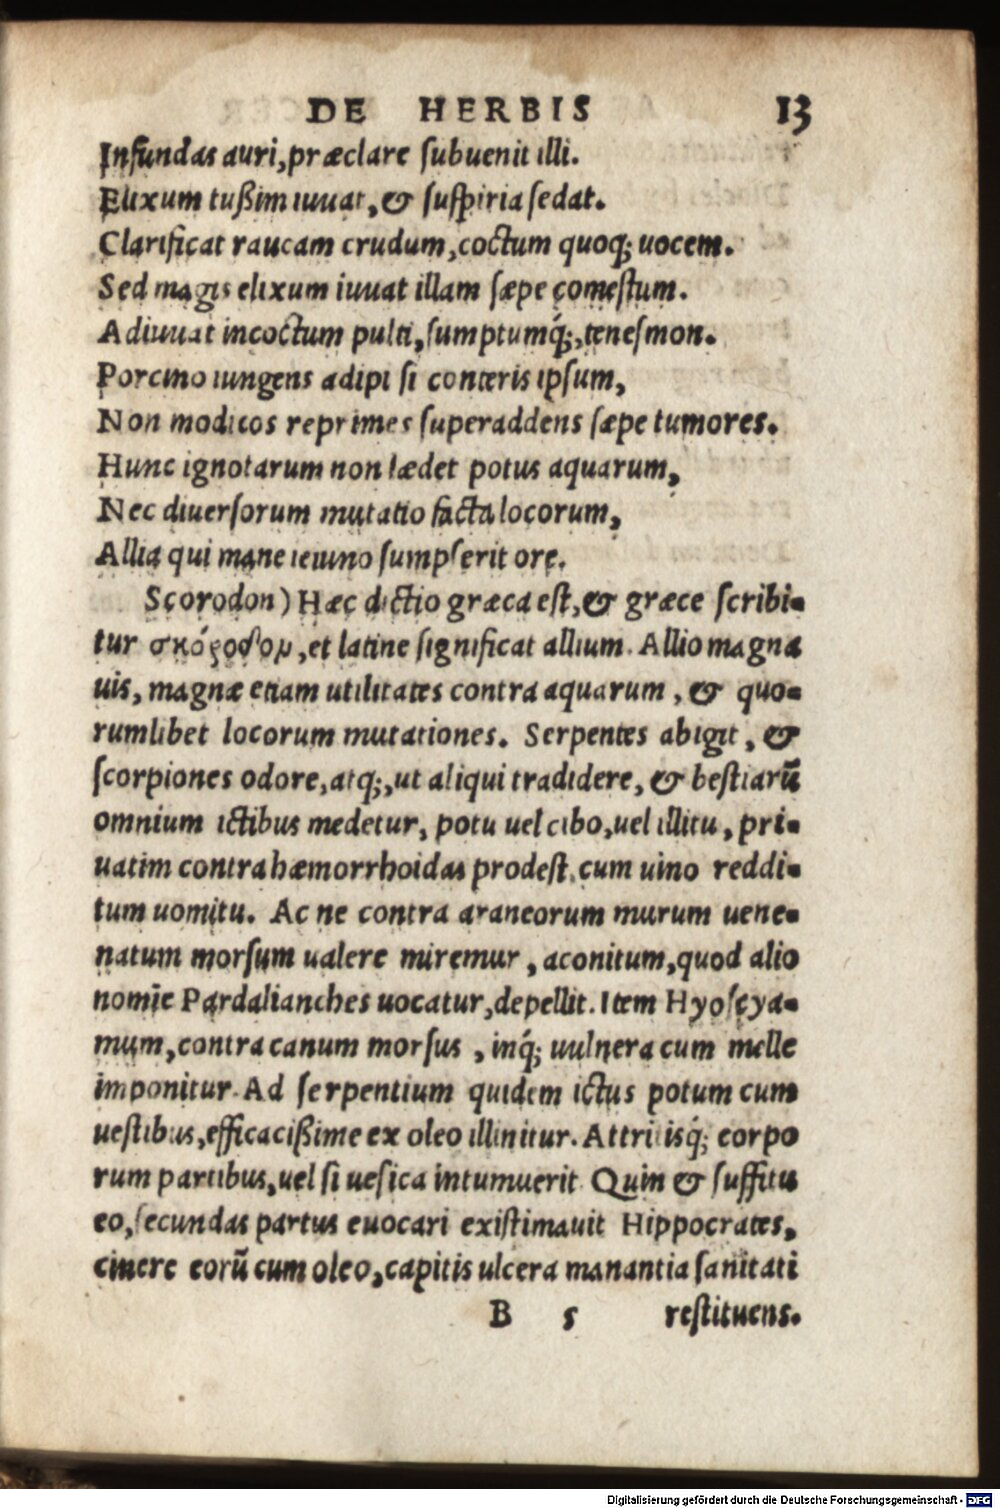 DE HERBIS 13
Infundas auri, præclare ſubuenit illi.
Elixum tußim iuuat, & ſuſpiria ſedat.
Clarificat raucam crudum, coctum quoq; uocem.
Sed magis elixum iuuat illam ſæpe comeſtum.
Adiuuat incoctum pulti, ſumptumq́;, teneſmon.
Porcino iungens adipi ſi conteris ipſum,
Non modicos reprimes ſuperaddens ſæpe tumores.
Hunc ignotarum non lædet potus aquarum,
Nec diuerſorum mutatio facta locorum,
Allia qui mane ieiuno ſumpſerit ore.
Scorodon) Hæc dictio græca eſt, & græce ſcribi-
tur σκόροδομ, et latine ſignificat allium. Allio magna
uis, magnæ etiam utilitates contra aquarum, & quo-
rumlibet locorum mutationes. Serpentes abigit, &
ſcorpiones odore, atq;, ut aliqui tradidere, & beſtiarũ
omnium ictibus medetur, potu uel cibo, uel illitu, pri-
uatim contra hæmorrhoidas prodeſt. cum uino reddi-
tum uomitu. Ac ne contra araneorum murum uene-
natum morſum ualere miremur, aconitum, quod alio
nomĩe Pardalianches uocatur, depellit. Item Hyoſcya-
mum, contra canum morſus, inq́; uulnera cum melle
imponitur. Ad ſerpentium quidem ictus potum cum
ueſtibus, efficacißime ex oleo illinitur. Attritisq́; corpo
rum partibus, uel ſi ueſica intumuerit. Quin & ſuffitu
eo, ſecundas partus euocari exiſtimauit Hippocrates,
cinere eorũ cum oleo, capitis ulcera manantia ſanitati
B 5 reſtituens.
Digitalisierung gefördert durch die Deutsche Forschungsgemeinschaft - DFG